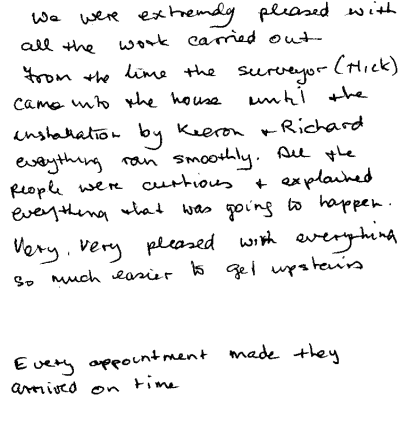 We were extremely pleased with
all the work carried out
From the time the surveyor (Mick)
came into the house until the
installation by Keeron + Richard
everything ran smoothly. All the
people were curtious + explained
everything that was going to happen.
Very, very pleased with everything
so much easier to get upstairs
Every appointment made they
arrived on time